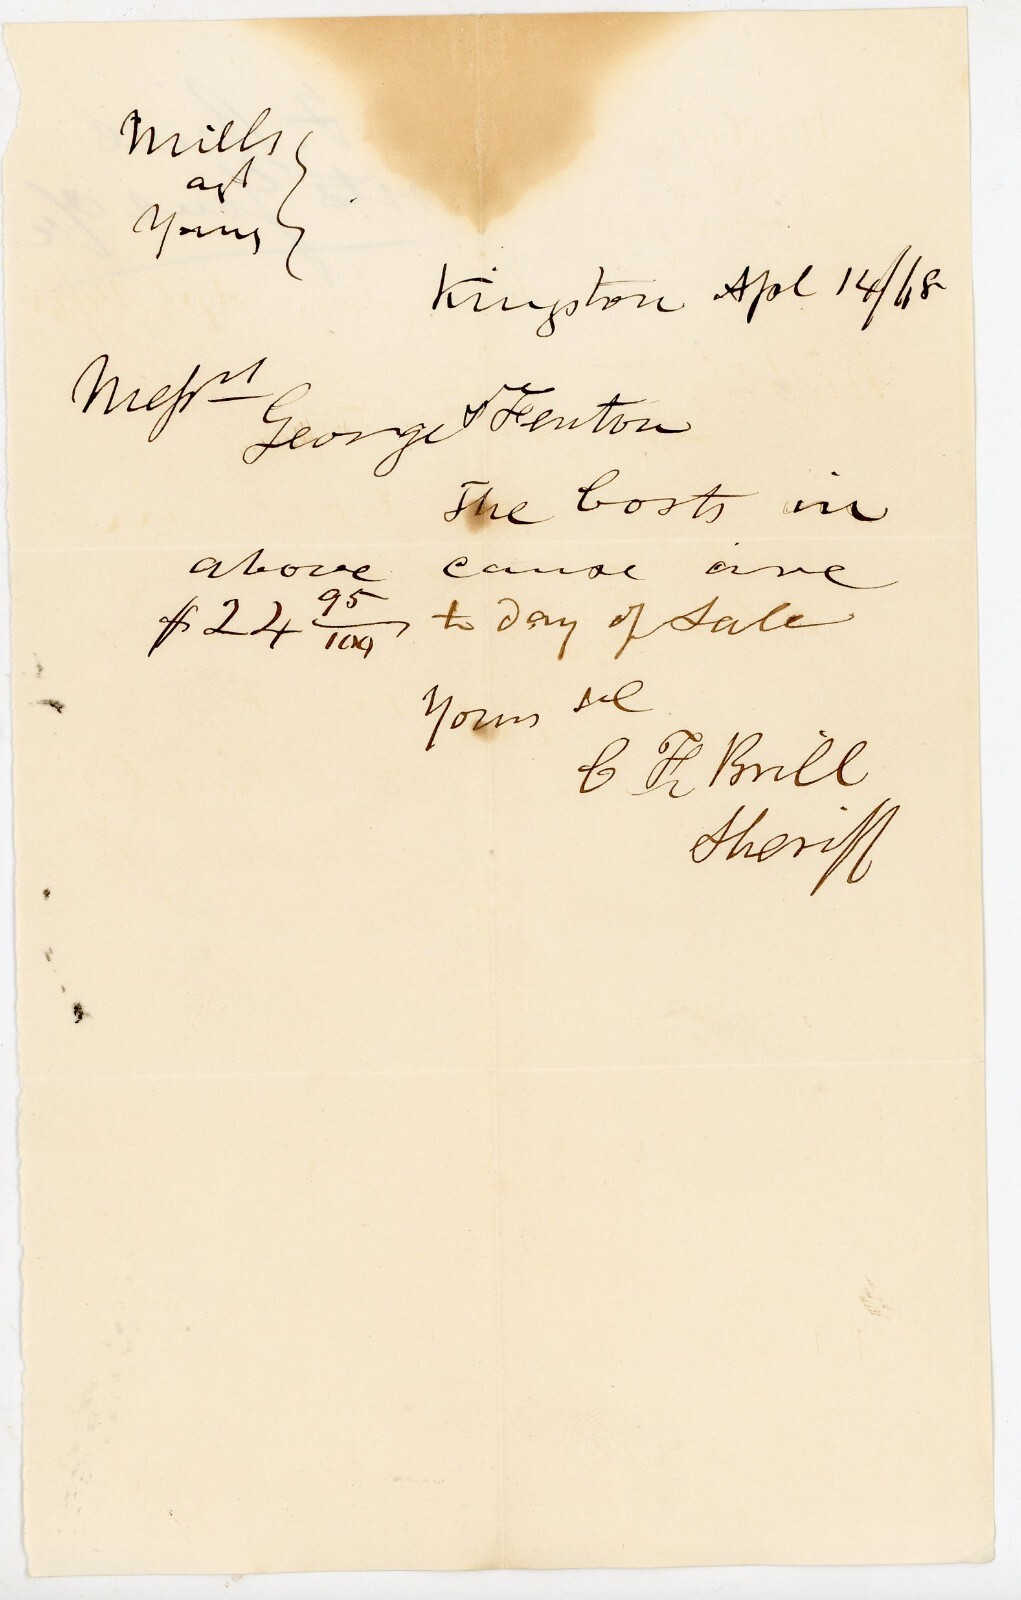 Mills
agt
Young
Kingston Apl 14/68
Messrs
George & Fenton
The Costs in
above cause are
$24 95/100 to day of Sale
Yours &c
C F Brill
Sheriff